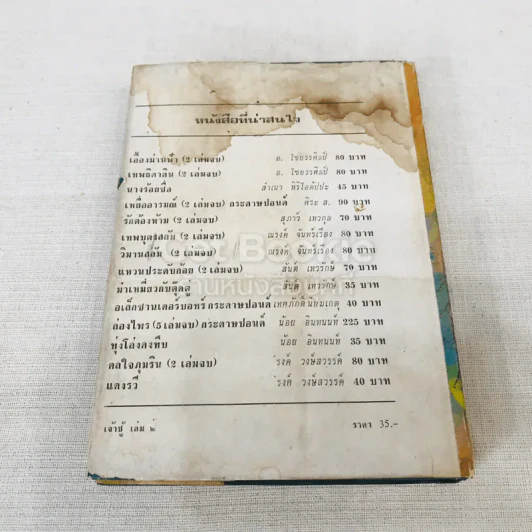 หนังสือที่น่าสนใจ
เอื้องม่านฟ้า (2 เล่มจบ) อ. ไชยวรศิลป์ 80 บาท
เทพธิดาดิน (2 เล่มจบ) อ. ไชยวรศิลป์ 80 บาท
นางร้อยชื่อ ลำเนา หิริโอตัปปะ 45 บาท
เหยื่ออารมณ์ (2 เล่มจบ) กระดาษปอนด์ ศิระ ส. 90 บาท
รักต้องห้าม (2 เล่มจบ) สุภาว์ เทวกุล 70 บาท
เทพบุตรสลัม (2 เล่มจบ) ณรงค์ จันทร์เรือง 80 บาท
วิมานสลัม (2 เล่มจบ) ณรงค์ จันทร์เรือง 80 บาท
แหวนประดับก้อย (2 เล่มจบ) สันต์ เทวรักษ์ 70 บาท
สันต์ เทวรักษ์ 35 บาท
อเล็กซานเดอร์มอทร์ กระดาษปอนด์ 40 บาท
ล่องไพร (5 เล่มจบ) กระดาษปอนด์ น้อย อินทนนท์ 225 บาท
ทุ่งโล่งดงทึบ น้อย อินทนนท์ 35 บาท
(2 เล่มจบ) 'รงค์ วงษ์สวรรค์ 80 บาท
แดงรวี 'รงค์ วงษ์สวรรค์ 40 บาท
เจ้าชู้ เล่ม ๒ ราคา 35.-